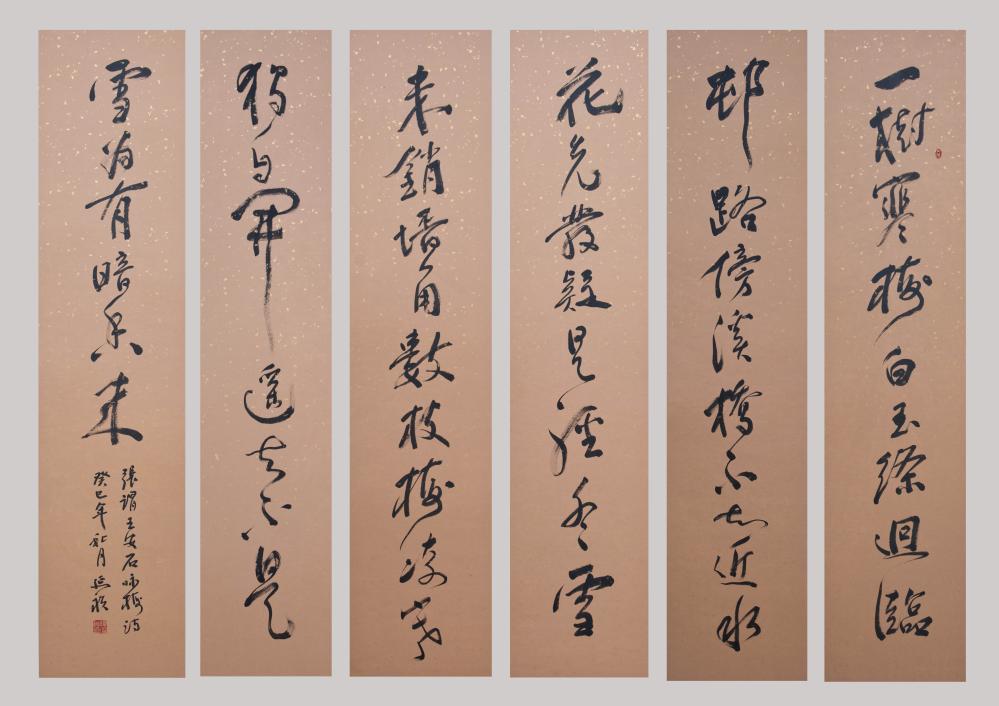 一樹寒梅白玉條迴臨
邨路傍溪橋不知近水
花先發疑是經冬雪
未銷墻角數枝梅凌寒
獨自開遥知不是
雪為有暗香來
張謂王安石咏梅詩
癸巳年秋月